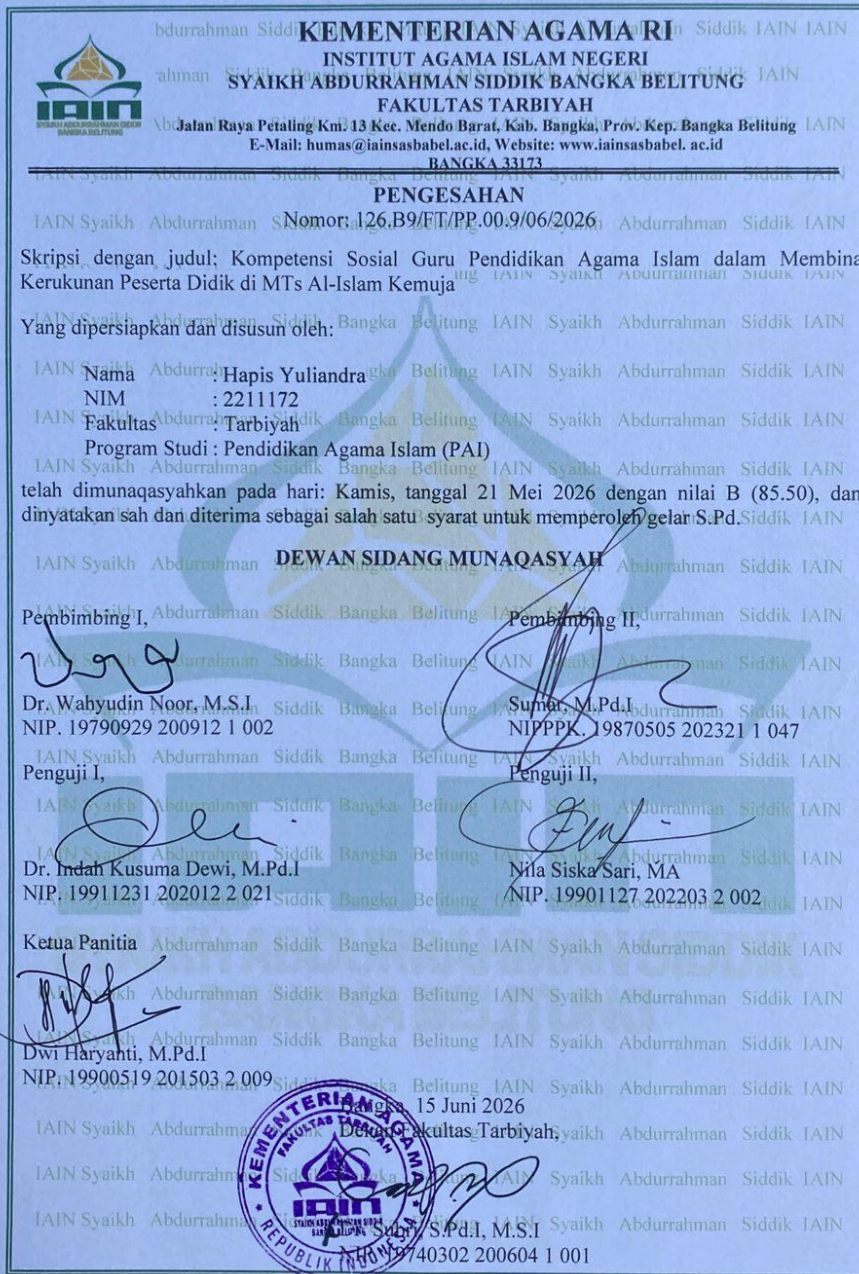 KEMENTERIAN AGAMA RI
INSTITUT AGAMA ISLAM NEGERI
SYAIKH ABDURRAHMAN SIDDIK BANGKA BELITUNG
FAKULTAS TARBIYAH
Jalan Raya Petaling Km. 13 Kec. Mendo Barat, Kab. Bangka, Prov. Kep. Bangka Belitung
E-Mail: humas@iainsasbabel.ac.id, Website: www.iainsasbabel. ac.id
BANGKA 33173
IAIN
SYAIKH ABDURRAHMAN SIDDIK
BANGKA BELITUNG
PENGESAHAN
Nomor: 126.B9/FT/PP.00.9/06/2026
Skripsi dengan judul; Kompetensi Sosial Guru Pendidikan Agama Islam dalam Membina
Kerukunan Peserta Didik di MTs Al-Islam Kemuja
Yang dipersiapkan dan disusun oleh:
Nama : Hapis Yuliandra
NIM : 2211172
Fakultas : Tarbiyah
Program Studi : Pendidikan Agama Islam (PAI)
telah dimunaqasyahkan pada hari: Kamis, tanggal 21 Mei 2026 dengan nilai B (85.50), dan
dinyatakan sah dan diterima sebagai salah satu syarat untuk memperoleh gelar S.Pd.
DEWAN SIDANG MUNAQASYAH
Pembimbing I,
Pembimbing II,
Dr. Wahyudin Noor, M.S.I
NIP. 19790929 200912 1 002
Sumar, M.Pd.I
NIPPPK. 19870505 202321 1 047
Penguji I,
Penguji II,
Dr. Indah Kusuma Dewi, M.Pd.I
NIP. 19911231 202012 2 021
Nila Siska Sari, MA
NIP. 19901127 202203 2 002
Ketua Panitia
Dwi Haryanti, M.Pd.I
NIP. 19900519 201503 2 009
Bangka, 15 Juni 2026
Dekan Fakultas Tarbiyah,
KEMENTERIAN AGAMA
FAKULTAS TARBIYAH
IAIN
SYAIKH ABDURRAHMAN SIDDIK
BANGKA BELITUNG
REPUBLIK INDONESIA
Subri, S.Pd.I, M.S.I
NIP. 19740302 200604 1 001